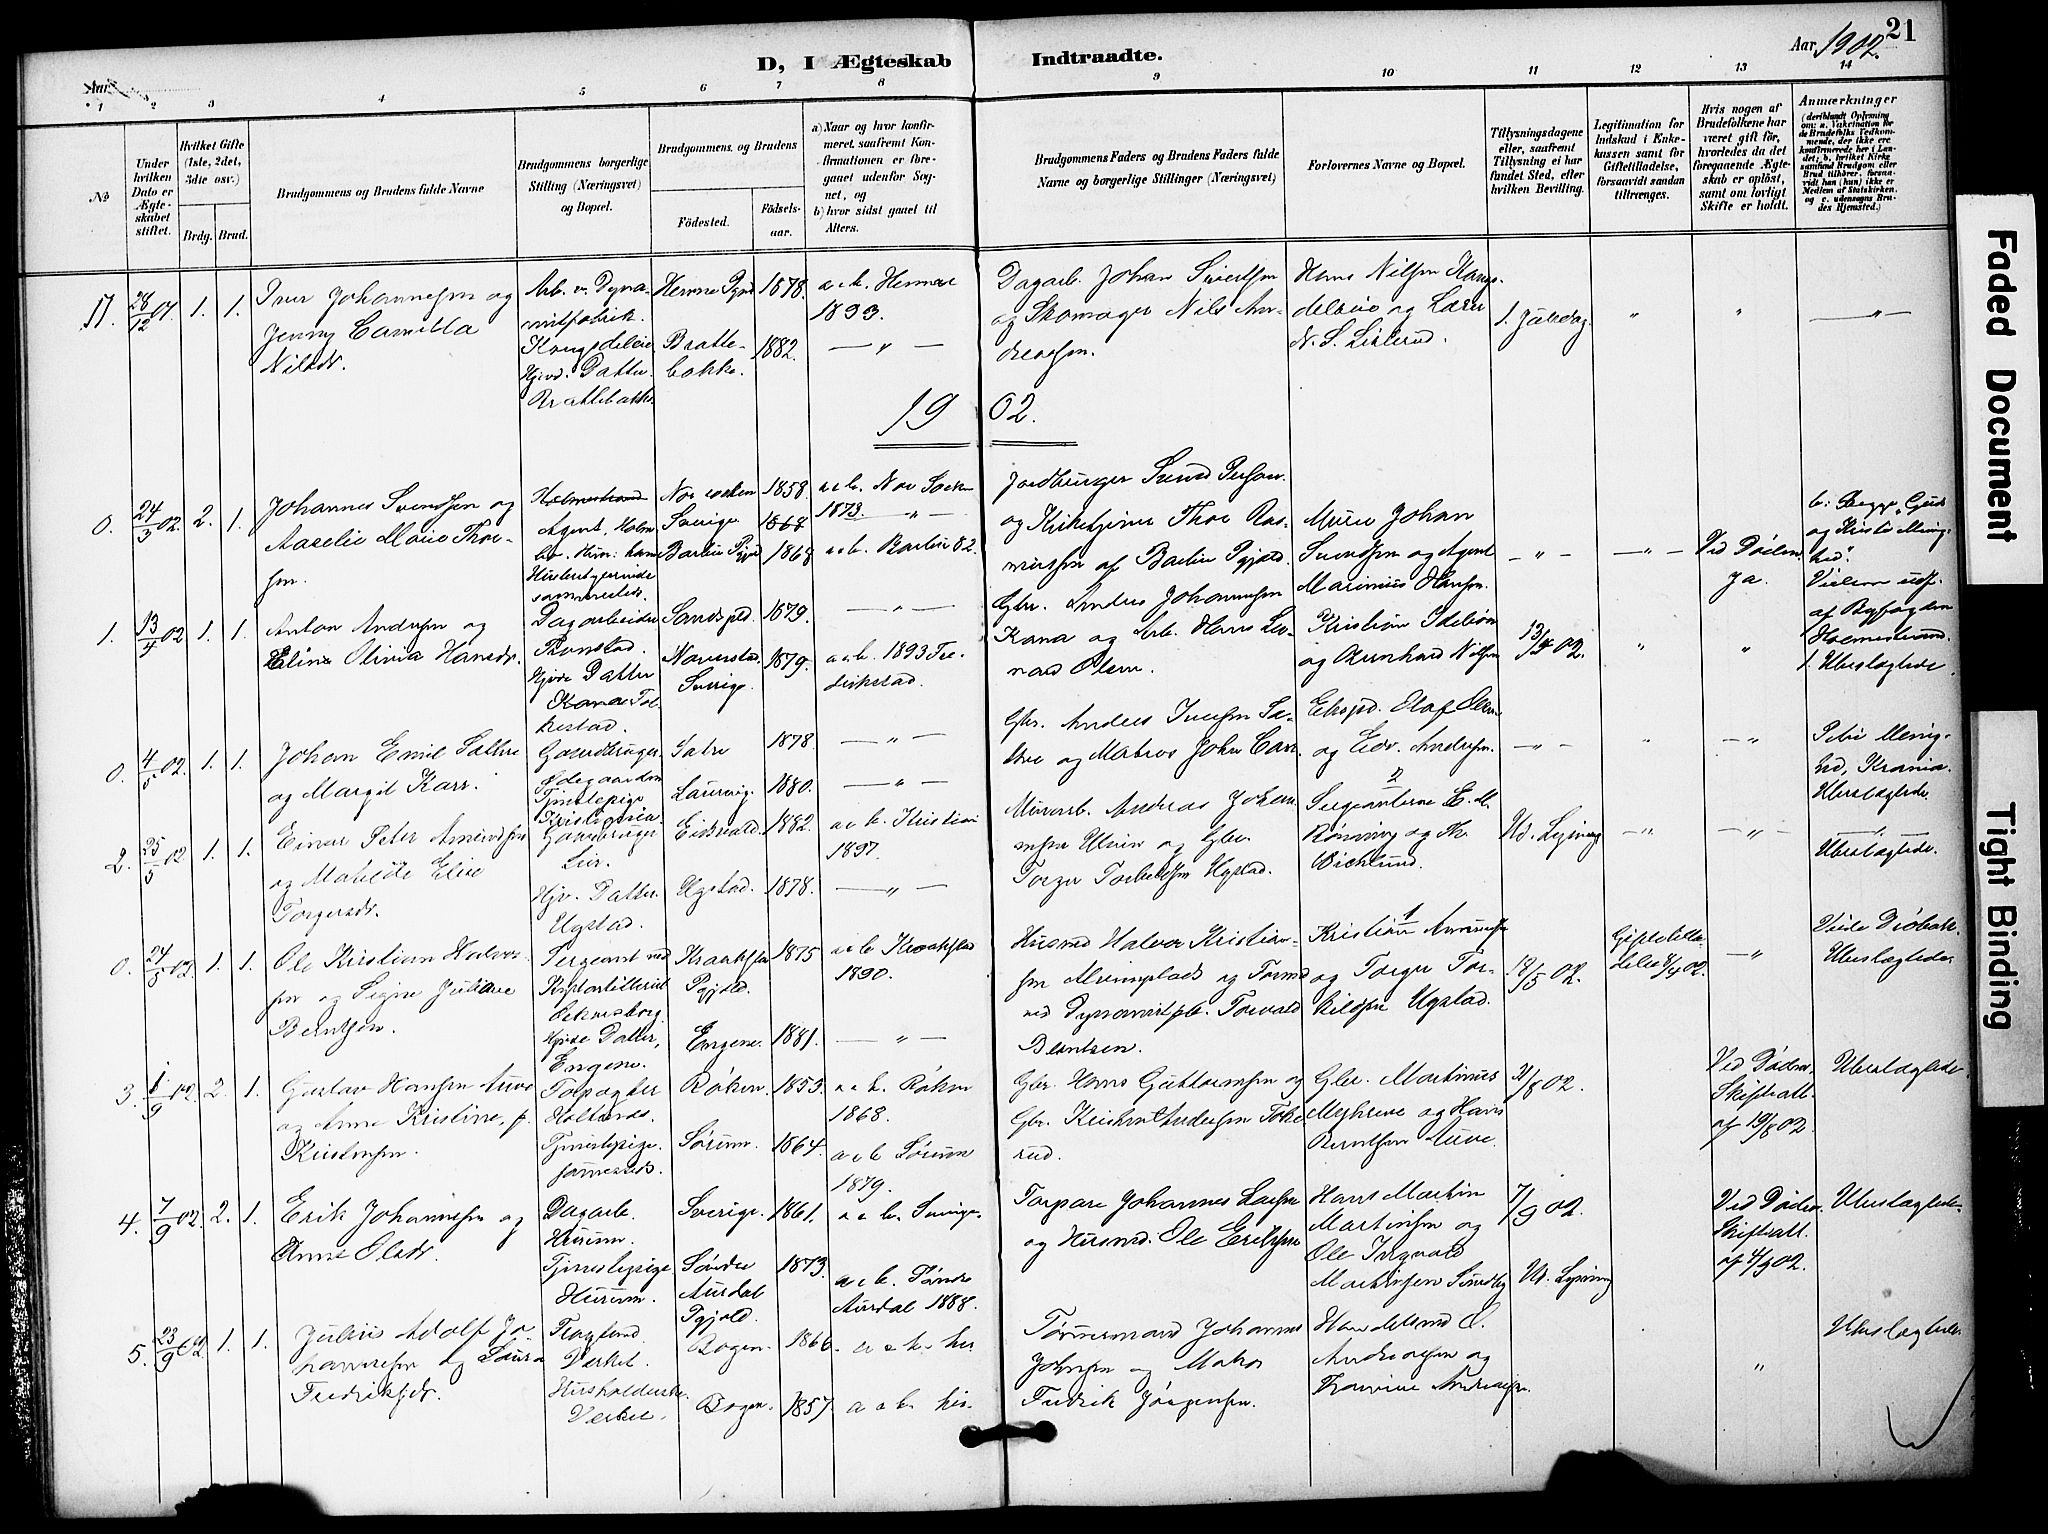 21
D, I Ægteskab Indtraadte.
Aar 1902.
Aar
1 2 3 4 5 6 7 8 9 10 11 12 13 14
No
Under hvilken Dato er Ægteskabet stiftet.
Hvilket Gifte (1ste, 2det, 3dte osv.)
Brdg. Brud.
Brudgommens og Brudens fulde Navne
Brudgommens borgerlige Stilling (Næringsvei) og Bopæl.
Brudgommens og Brudens
Födested. Födselsaar.
a) Naar og hvor konfirmeret, saafremt Konfirmationen er foregaaet udenfor Sognet, og
b) hvor sidst gaaet til Alters.
Brudgommens Faders og Brudens Faders fulde Navne og borgerlige Stillinger (Næringsvei)
Forlovernes Navne og Bopæl.
Tillysningsdagene eller, saafremt Tillysning ei har fundet Sted, efter hvilken Bevilling.
Legitimation for Indskud i Enkekassen samt for Giftetilladelse, forsaavidt saadan tiltrænges.
Hvis nogen af Brudefolkene har været gift før, hvorledes da det foregaaende Ægteskab er oplöst, samt om lovligt Skifte er holdt.
Anmærkninger
(deriblandt Oplysning om: a. Vakcination for de Brudefolks Vedkommende, der ikke ere konfirmerede her i Landet; b. hvilket Kirkesamfund Brudgom eller Brud tilhører, forsaavidt han (hun) ikke er Medlem af Statskirken, og c. udensogns Brudes Hjemsted.)
17. 28/12 01. 1. 1. Iver Johannesen og
Jenny Camilla
Nilsdr.
Arb. v. Dynamitfabrik.
Hjvd. Datter
Brattebakke.
Hemne Pgjd 1878.
Brattebakke. 1882.
a e b. Hemne 1893.
— " —
Dagarb. Johan Sivertsen
og Skomager Nils Andreassen.
Hans Nilsen
og Lærer
N. S. Lislerud.
1. Juledag. " " — " —
19 02.
0. 24/3 02. 2. 1. Johannes Svendsen og
Aaselie Marie Thoresen.
Agent,
sammesteds.
Nor socken 1858.
Sverige 1868
Barbu Pgjd 1868
a e b. Nor Socken
1873. — " —
a e b. Barbu 82.
Jordbruger Svend Person.
og Kirketjener Thor Rasmussen af Barbu Pgjæld.
Murer Johan
Svendsen og Agent
Marinius Hansen.
— " — — " — Ved Döden.
ja.
b: Begge
og Kristi Menighed.
Vielsen udf.
af Byfogden
Holmestrand.
1. 13/4 02 1. 1. Anton Andersen og
Eline Olivia Hansdr.
Dagarbeider
Hjvde Datter
Kana
Sandspld. 1879.
Naverstad, 1879.
Sverige.
— " —
a e b. 1893 Fredrikstad.
Gbr. Anders Johannesen
Kana og Arb. Hans Lernard Olsen.
Kristian
og Bernhard Nilsen
13/4 02. " " 1. Ubeslægtede.
0. 4/5 02. 1. 1. Johan Emil Sætre
og Margit Karr.
Gaardbruger
Tjenestepige
Kristiania
Sætre 1878.
Laurvig. 1880.
— " —
— " —
Gbr. Anders Iversen Sætre og Matros John Carr
Ekspd. Olaf Olsen
og Edv. Andersen.
— " — " — " —
Petri Menighed, Krania.
Ubeslægtede.
2. 25/5 02 1. 1. Einar Peter Amundsen
og Mathilde Elise
Torgersdr.
Gaardbruger
Hjv. Datter
Ugstad.
Eidsvold. 1882.
Ugstad. 1878.
a e b. Kristiani
1897.
— " —
Murarb. Andreas
og Gbr.
Torger Torbildsen Ugstad.
Sergeanterne E. M.
Rönning og Th.
Bichlund.
Ud. Lysning — " — — " — Ubeslægtede.
0. 24/5 02. 1. 1. Ole Kristian Halvorsen og Signe Juliane
Berntsen.
Sergeant ved
Kystartilleriet
Oskarsborg.
Hjvde Datter,
Engene.
Kraakstad Pgjæld. 1875
Engene. 1881.
a e b. Kraakstad
1890.
— " —
Husmd. Halvor Kristiansen og Formd
ved Dynamitfb. Torvald
Berntsen.
Kristian Amundsen
og Torger Torbildsen Ugstad.
18/5 02. Giftetilladelse 8/4 02. — " —
Viede Dröbak.
Ubeslægtede.
3. 1/9 02 2. 1. Gustav Hansen Auve
og Anna Kristine, f.
Kristensen.
Forpagter
Holtenæs.
Tjenestepige.
sammesteds.
Röken. 1853.
Sörum. 1864.
a e b. Röken
1868.
a e b. Sörum
1879.
Gbr. Hans Guttormsen og
Gbr. Kristian Andersen Tokerud.
Gbr. Martinius
Myhrene og Hans
Berntsen Auve.
21/8 02. Ved Döden,
Skifteatt.
af 19/8 02.
Ubeslægtede.
4. 7/9 02. 2. 1. Erik Johannesen og
Anne Olsdr.
Dagarb.
Hurum.
Tjenestepige
Hurum.
Sverige. 1861.
Söndre Aurdal Pgjæld. 1873.
a e b. Sverige.
a e b. Söndre
Aurdal 1888.
Torpare Johannes Larsen
og Husmd. Ole Eriksen
Hans Martin
Martinsen og
Ole Ingvald
Martinsen Sundby
7/9 02. Ved Döden.
Skifteatt.
af 4/9 02.
Ubeslægtede.
Ud. Lysning
5. 23/9 02 1. 1. Julius Adolf Johannesen og Laura
Fredriksdr.
Verket.
Husholderske
Verket.
Bogen. 1866.
Bogen. 1857.
a e b. her
a e b. her.
Tömmermand Johannes
Johnsen og Matros
Fredrik Jörgensen.
Handelsmd O.
Andreasen og
Andreasen.
"
Ubeslægtede.
Faded Document
Tight Binding